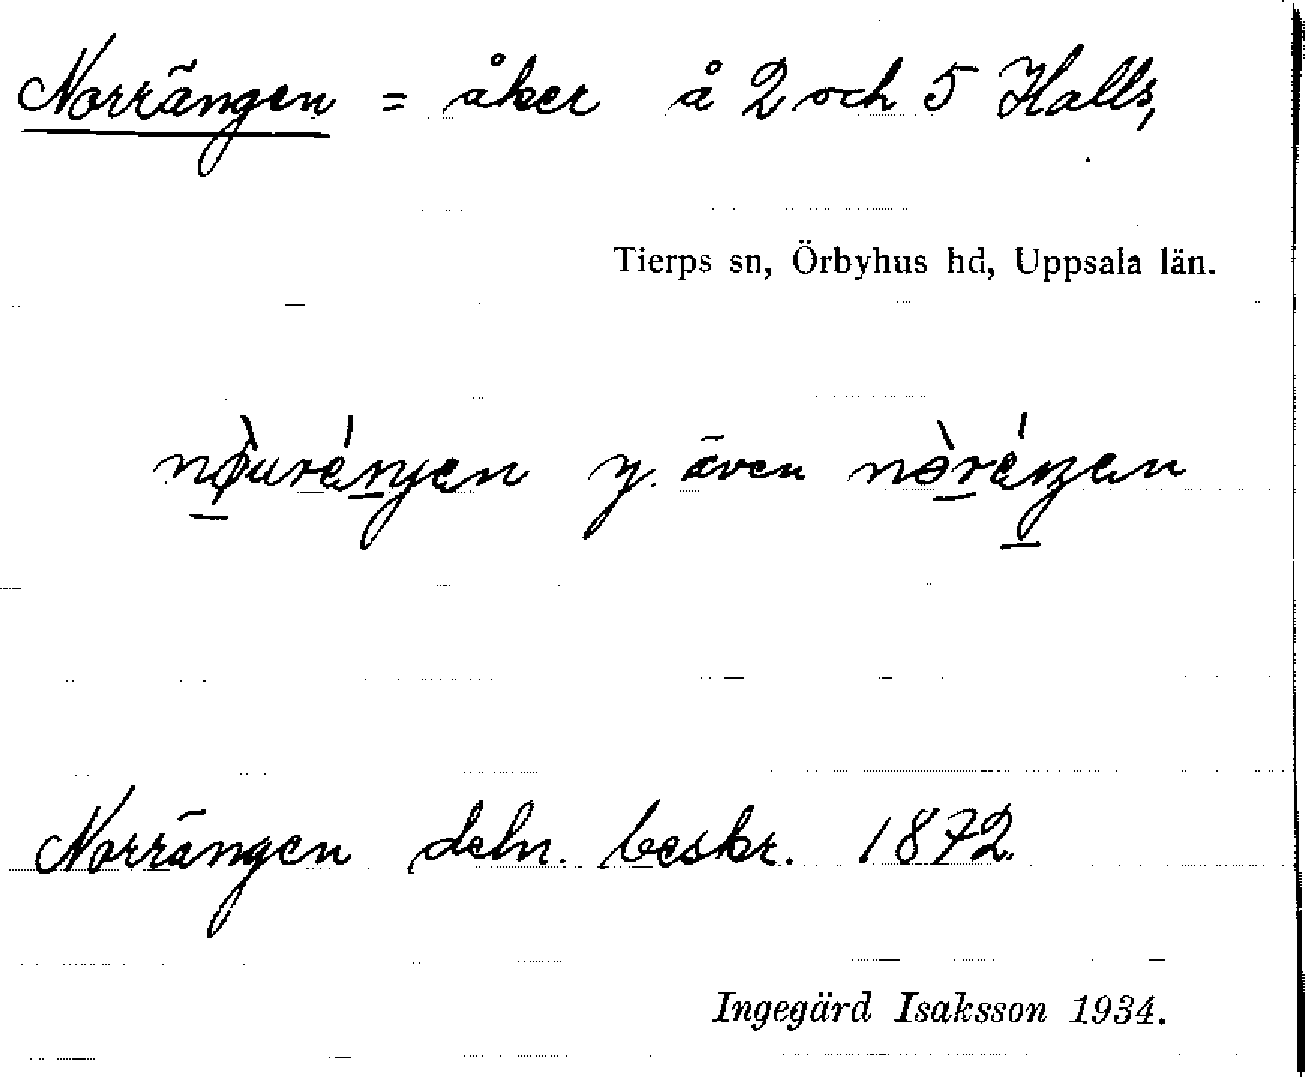 Norrängen = åker å 2 och 5 Halls,
Tierps sn, Örbyhus hd, Uppsala län.
y. även
Norrängen deln. beskr. 1872
Ingegärd Isaksson 1934.